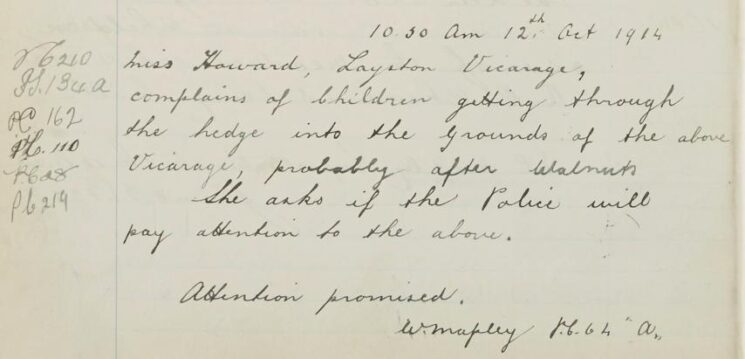 10.30 Am 12th Oct 1914
Miss Howard, Layston Vicarage,
complains of Children getting through
the hedge into the Grounds of the above
Vicarage, probably after Walnuts
She asks if the Police will
pay attention to the above.
Attention promised.
W. Mapley P.C. 64 "A"
PC 210
PS. 134 A
PC 162
P.C. 110
P.C. 28
PC 214